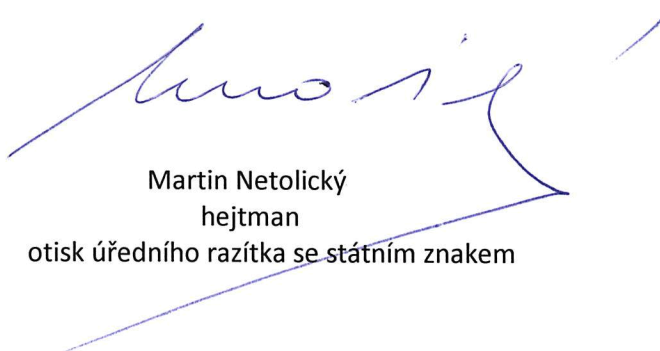 Martin Netolický
hejtman
otisk úředního razítka se státním znakem